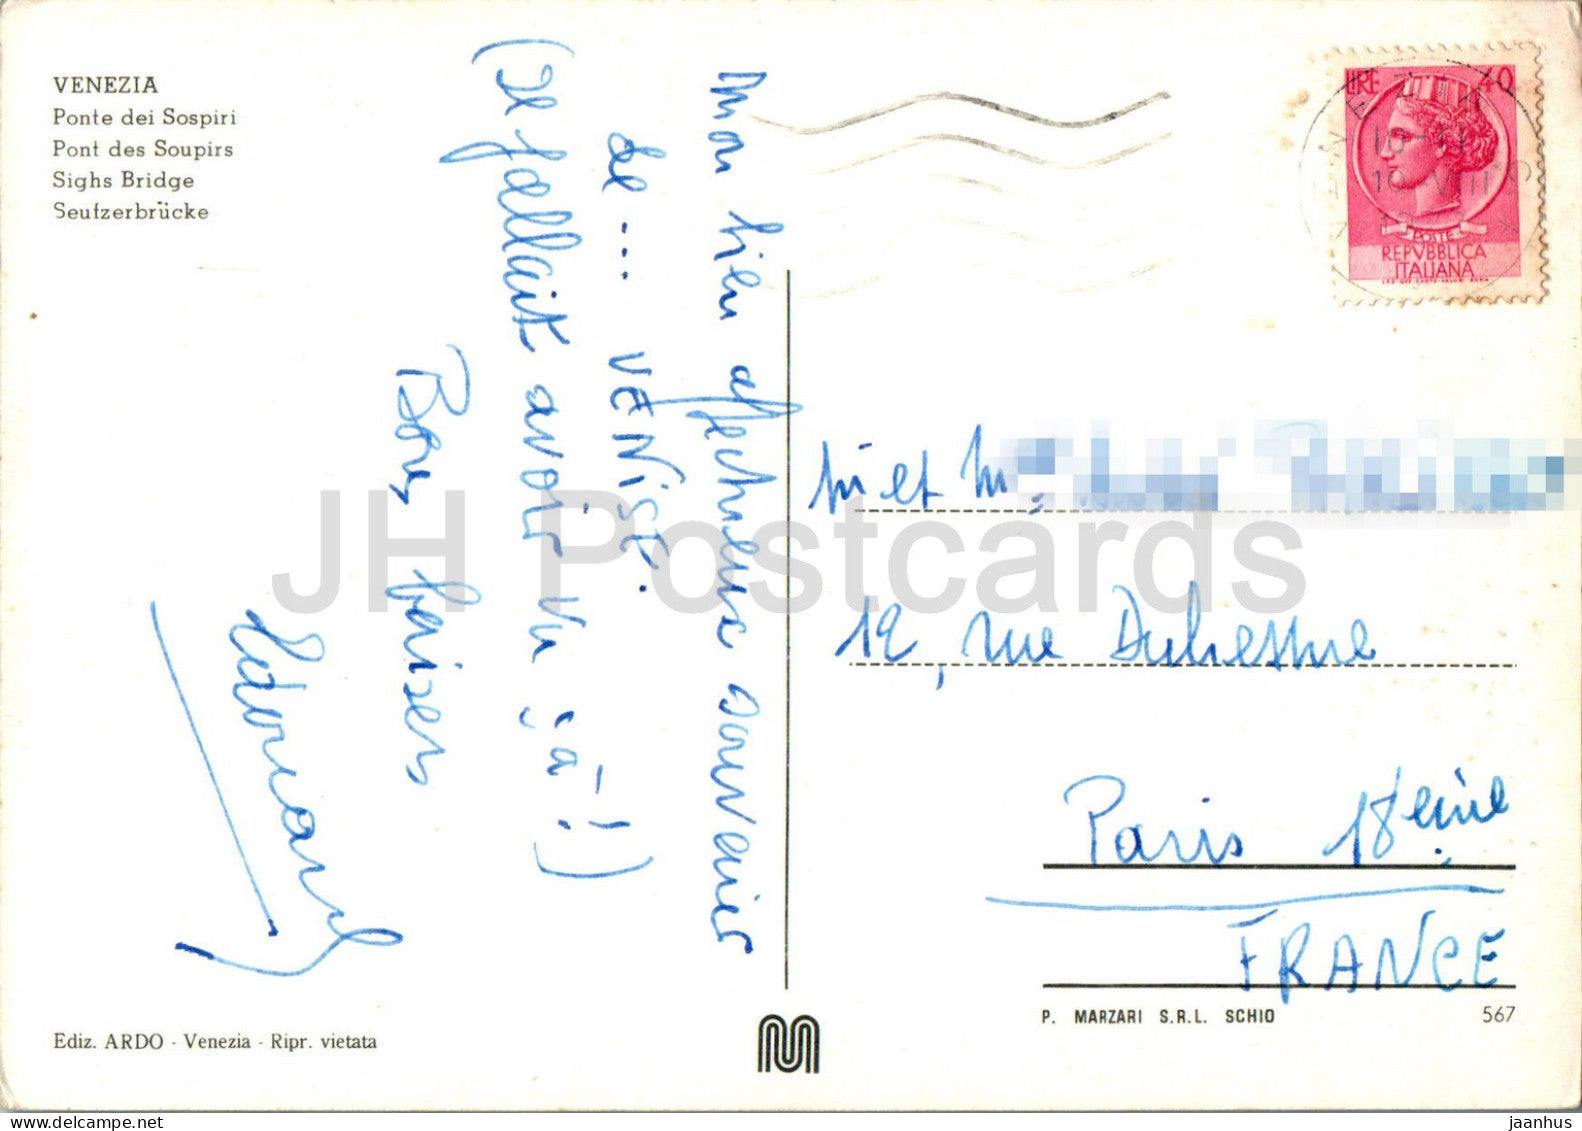 VENEZIA
Ponte dei Sospiri
Pont des Soupirs
Sighs Bridge
Seufzerbrücke
Mon bien affectueux souvenir
de .... VENISE.
(Il fallait avoir vu ça !)
Bons baisers
Edouard
LIRE 40
POSTE
REPVBBLICA
ITALIANA
10-11
10 VIII
M et M
12, rue Duhesme
Paris 18eme
FRANCE
JH Postcards
Ediz. ARDO - Venezia - Ripr. vietata
P. MARZARI S.R.L. SCHIO
567
jaanhus